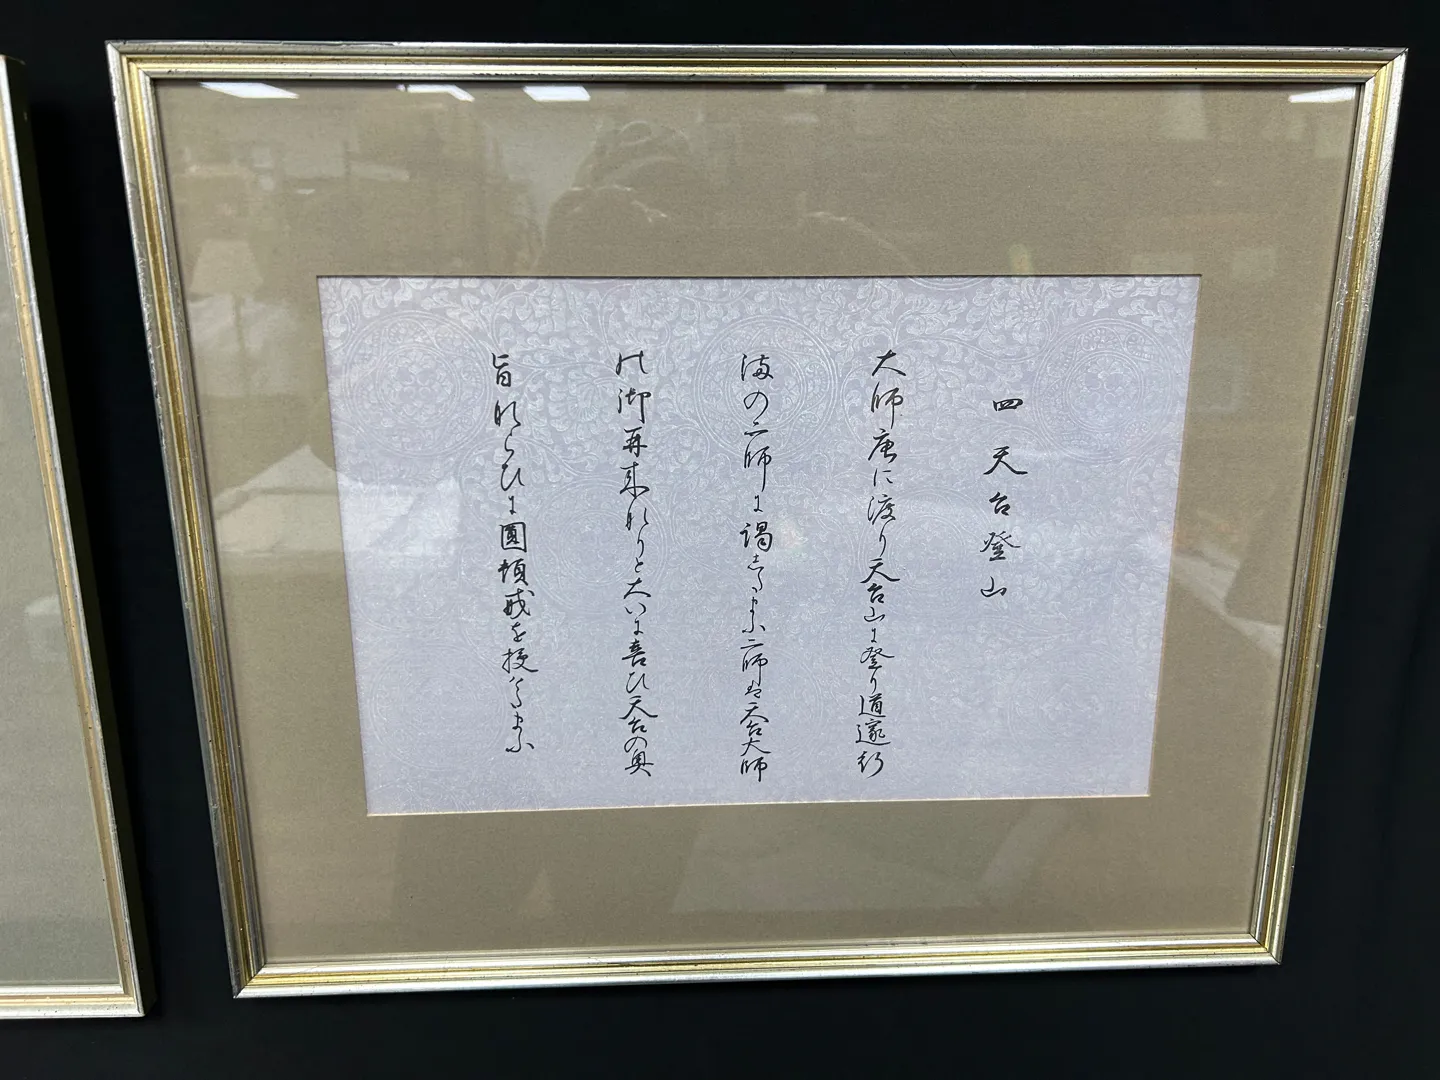 四 天台登山
大師唐に渡り天台山に登り道邃行
満の二師に謁したまふ二師は天台大師
の御再来なりと大いに喜ひ天台の奥
旨ならひに圓頓戒を授けたまふ